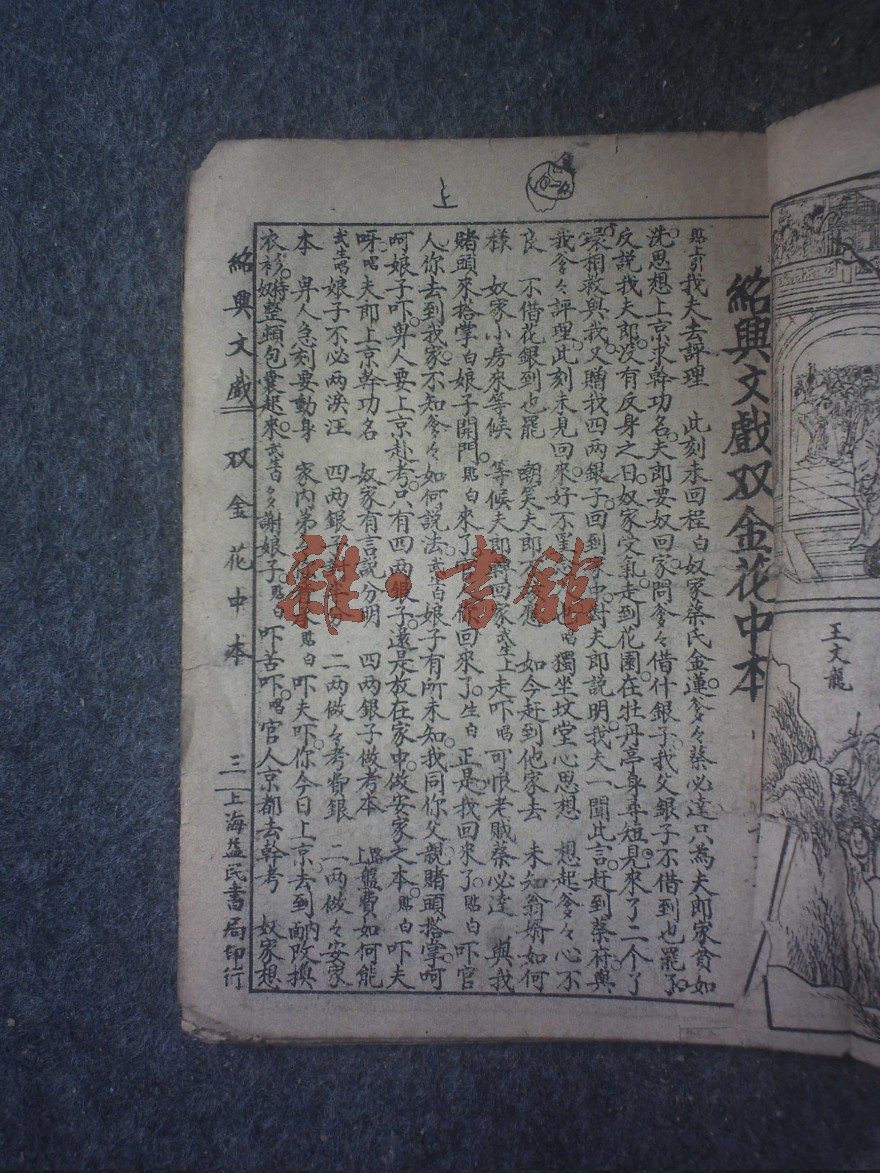 上
紹興文戲双金花中本
貼上引找夫去評理 此刻未回程白奴家蔡氏金蓮爹々蔡必達只為夫郎家貧如
洗思想上京求幹功名夫郎要奴回家問爹々借什銀子我父銀子不借到也罷了
反說找夫郎沒有反身之日奴家受氣走到花園在牡丹亭身尋短見來了二个了
環相救與我又贈我四两銀子回到 中对夫郎説明我夫一聞此言赶到蔡府與
我爹々評理此刻未見回來好不 心 唱獨坐坟堂心思想 想起爹々心不
良 不借花銀到也罷 嘲笑夫郎 如今赶到他家去 未知翁婿如何
樣 奴家小房來等候 等候夫郎 回家武生上走吓唱可恨老賊蔡必達 與我
賭頭來拾掌白娘子開門貼白來了 回來了生白正是我回來了貼白吓官
人你去到我家不知爹々如何說法武生白娘子有所未知我同你父親賭頭拾掌呵
呵娘子吓卑人要上京赴考只有四两銀子還是放在家中做安家之本貼白吓夫
呀唱夫郎上京幹功名 奴家有言説分明 四两銀子做考本 路上盤費如何能
武生唱娘子不必两淚汪 四两銀子 二两做々考費銀 二两做々安家
本 卑人急刻要動身 家內 貼白吓夫吓你今日上京去到 改换
衣衫待奴整頓包囊起來武生白多々謝娘子貼白吓苦吓唱官人京都去幹考 奴家想
紹興文戲 双金花中本 三 上海益民書局印行
王文龍
雜·書館